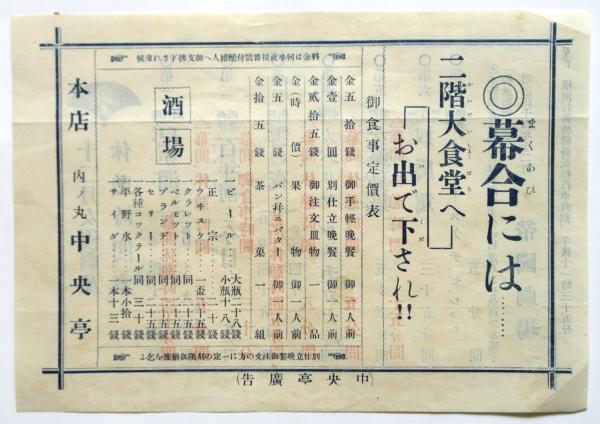 ◎幕合には……
まくあひ
二階大食堂へ
お出で下され!!
御食事定價表
金五拾錢 御手輕晩餐 御一人前
金壹圓 別仕立晩餐 御一人前
金貳拾五錢 御注文皿物 一品
金(時價) 果物 御一人前
金五錢 パン并ニバター 御一人前
金拾五錢 茶菓 一組
酒場
一ビール 大瓶二十八錢
小瓶十八錢
一正宗 一本二十錢
一ウヰスケー 一盃十五錢
一クラレット 同 二十五錢
一ベルモット 同 十五錢
一ブランデー 同 二十五錢
一セリー 同 二十五錢
一各種コックテール 同 三十錢
一平野水 一本小拾錢
一サイダー 一本十三錢
本店 丸ノ内 中央亭
料金は何卒直接番號付配膳人へ御支拂下され度候
別仕立晩餐御注文の方に一定の刻限御猶豫を乞ふ
(中央亭廣告)